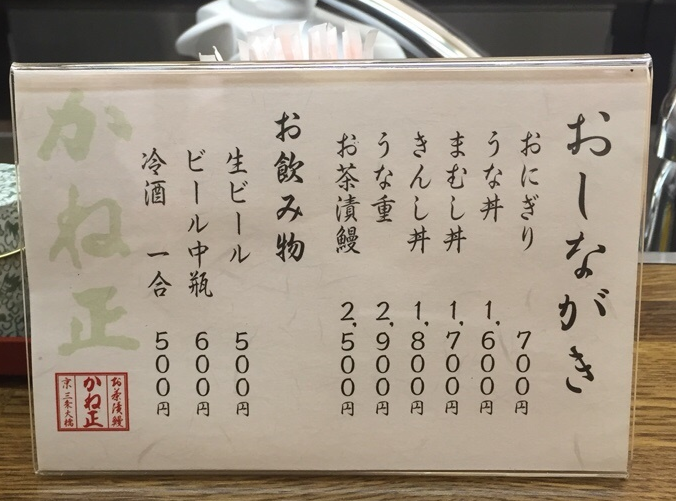 おしながき
おにぎり 700円
うな丼 1,600円
まむし丼 1,700円
きんし丼 1,800円
うな重 2,900円
お茶漬鰻 2,500円
お飲み物
生ビール 500円
ビール中瓶 600円
冷酒 一合 500円
かね正
お茶漬鰻
かね正
京 三条大橋